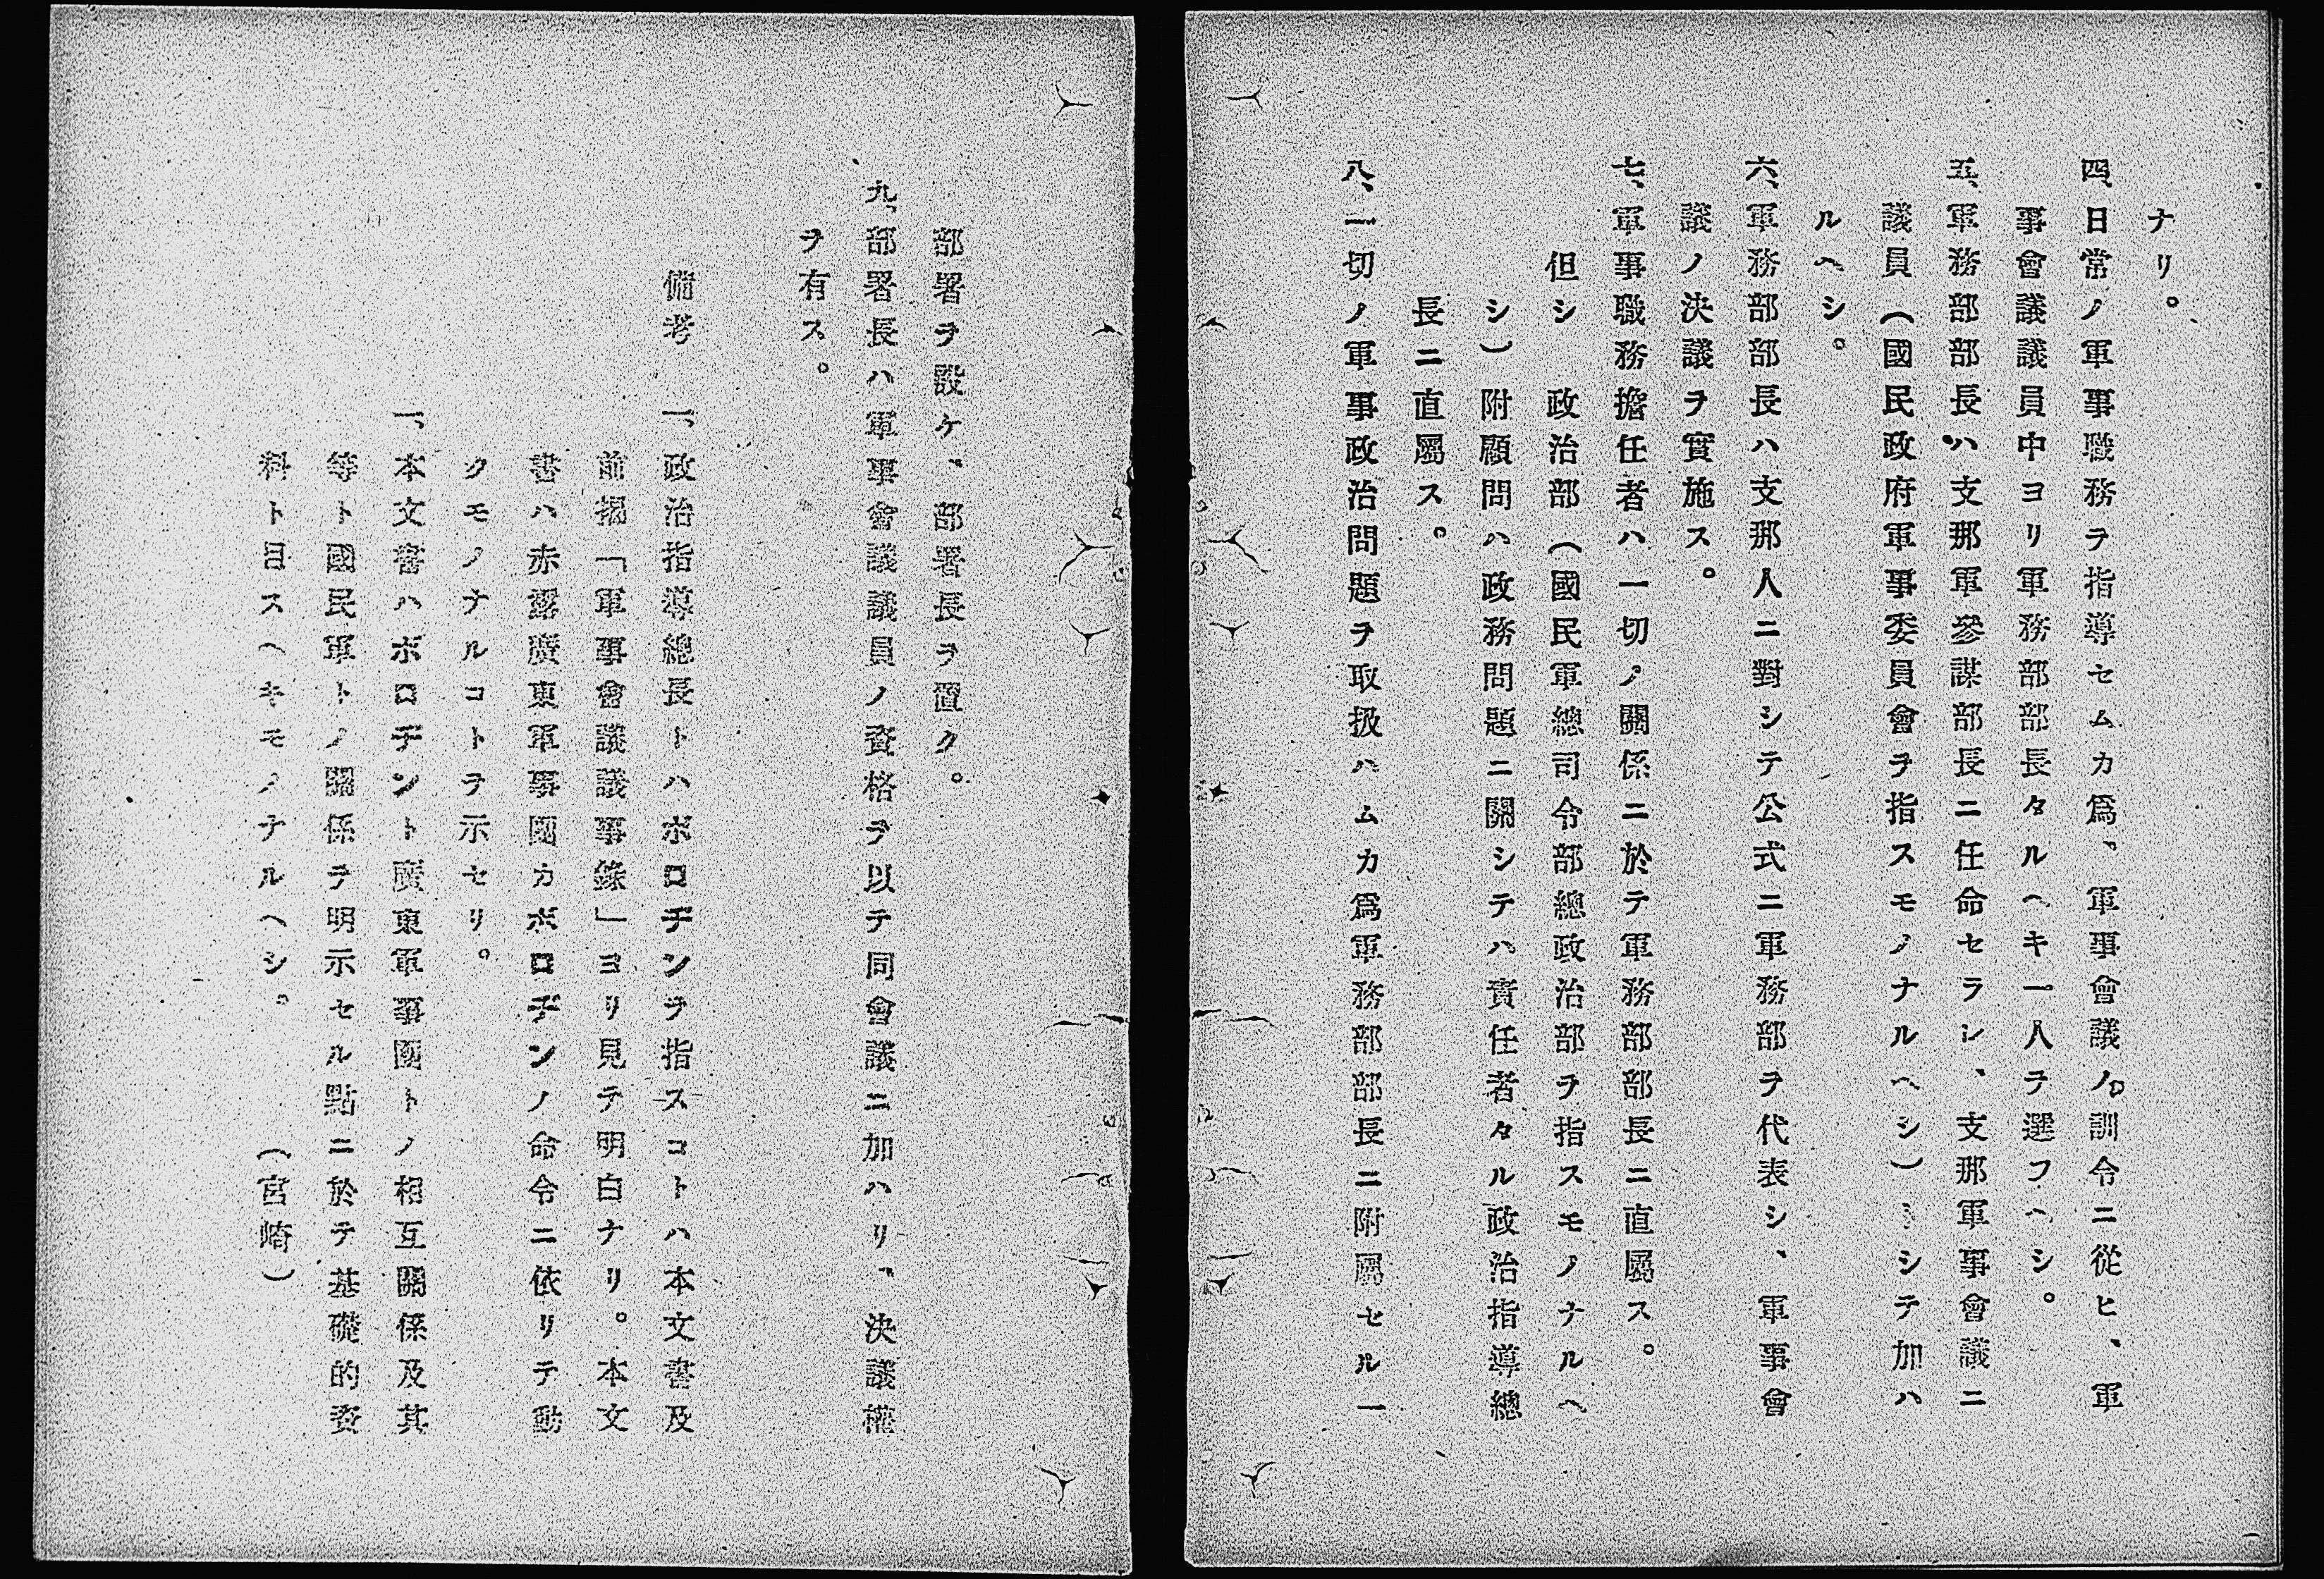 ナリ。
四、日常ノ軍事職務ヲ指導セムカ爲、軍事會議ノ訓令ニ從ヒ、軍
事會議議員中ヨリ軍務部部長タルヘキ一人ヲ選フヘシ。
五、軍務部部長ハ支那軍參謀部長ニ任命セラレ、支那軍事會議ニ
議員（國民政府軍事委員會ヲ指スモノナルヘシ）トシテ加ハ
ルヘシ。
六、軍務部部長ハ支那人ニ對シテ公式ニ軍務部ヲ代表シ、軍事會
議ノ決議ヲ實施ス。
七、軍事職務擔任者ハ一切ノ關係ニ於テ軍務部部長ニ直屬ス。
但シ　政治部（國民軍總司令部總政治部ヲ指スモノナルヘ
シ）附顧問ハ政務問題ニ關シテハ責任者タル政治指導總
長ニ直屬ス。
八、一切ノ軍事政治問題ヲ取扱ハムカ爲軍務部部長ニ附屬セル一
部署ヲ設ケ、部署長ヲ置ク。
九、部署長ハ軍事會議議員ノ資格ヲ以テ同會議ニ加ハリ、決議權
ヲ有ス。
備考　一、政治指導總長トハボロヂンヲ指スコトハ本文書及
前揭「軍事會議議事錄」ヨリ見テ明白ナリ。本文
書ハ赤露廣東軍事團カボロヂンノ命令ニ依リテ動
クモノナルコトヲ示セリ。
一、本文書ハボロヂント廣東軍事團トノ相互關係及其
等ト國民軍トノ關係ヲ明示セル點ニ於テ基礎的資
料ト目スヘキモノナルヘシ。　　（宮崎）